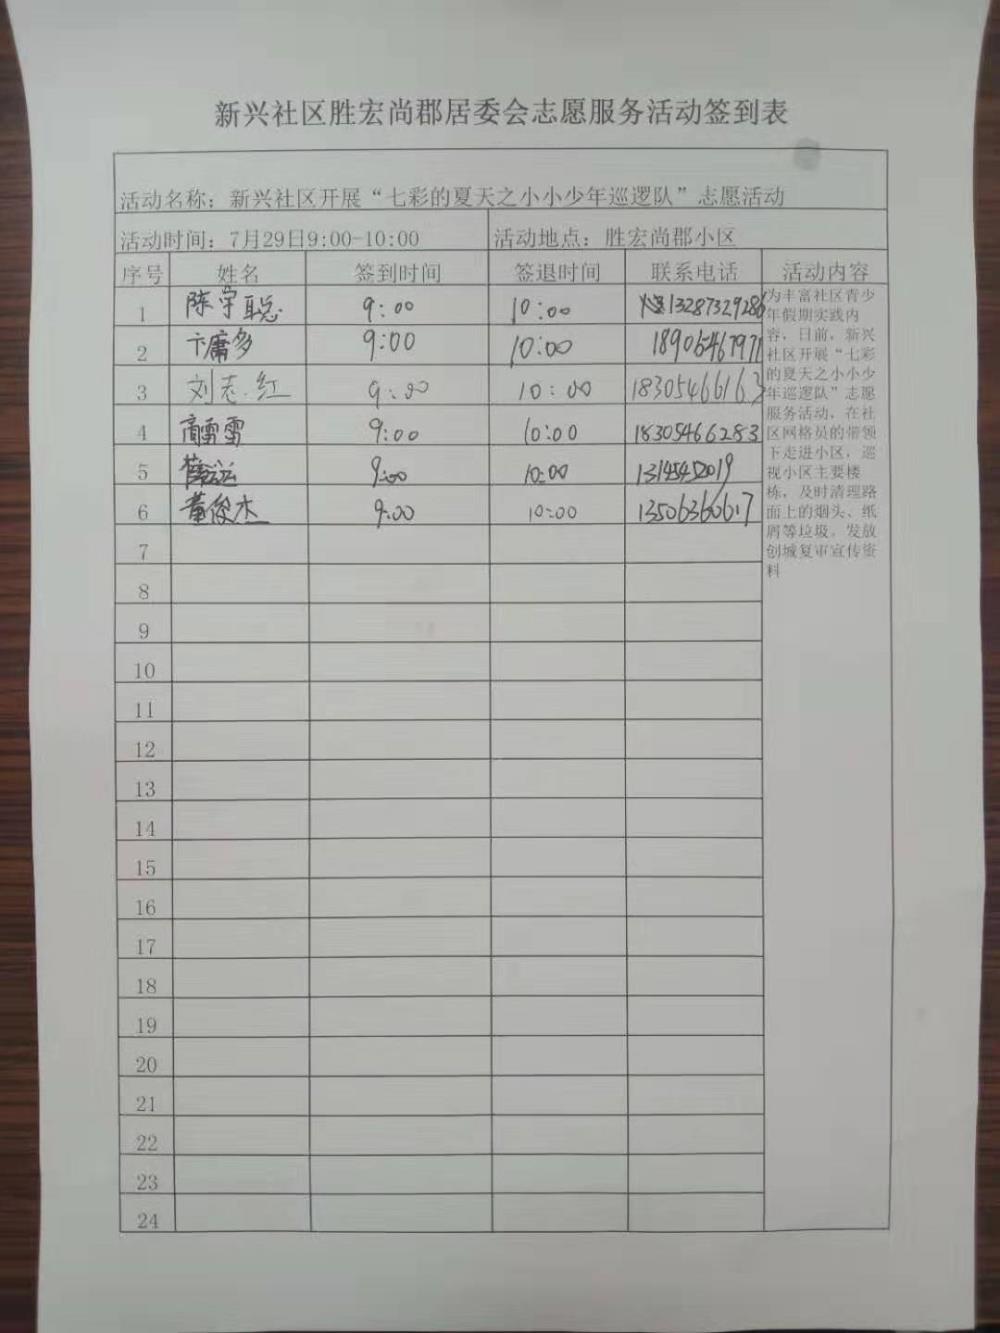 新兴社区胜宏尚郡居委会志愿服务活动签到表
活动名称：新兴社区开展“七彩的夏天之小小少年巡逻队”志愿活动
活动时间：7月29日9:00-10:00 活动地点：胜宏尚郡小区
序号 姓名 签到时间 签退时间 联系电话 活动内容
1 陈宇聪 9:00 10:00 13287329286
2 卞庸多 9:00 10:00 18905467971
3 刘志红 9:00 10:00 18305466163
4 高雷雷 9:00 10:00 18305466283
5 9:00 10:00
6 董俊杰 9:00 10:00 13506360617
7
8
9
10
11
12
13
14
15
16
17
18
19
20
21
22
23
24
为丰富社区青少
年假期实践内
容，日前，新兴
社区开展“七彩
的夏天之小小少
年巡逻队”志愿
服务活动，在社
区网格员的带领
下走进小区，巡
视小区主要楼
栋，及时清理路
面上的烟头、纸
屑等垃圾，发放
创城复审宣传资
料